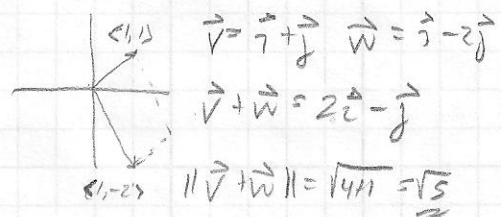 <1,1>
v⃗ = i⃗ + j⃗   w⃗ = i⃗ - 2j⃗
v⃗ + w⃗ = 2i⃗ - j⃗
<1,-2>
||v⃗ + w⃗|| = √(4+1) = √5